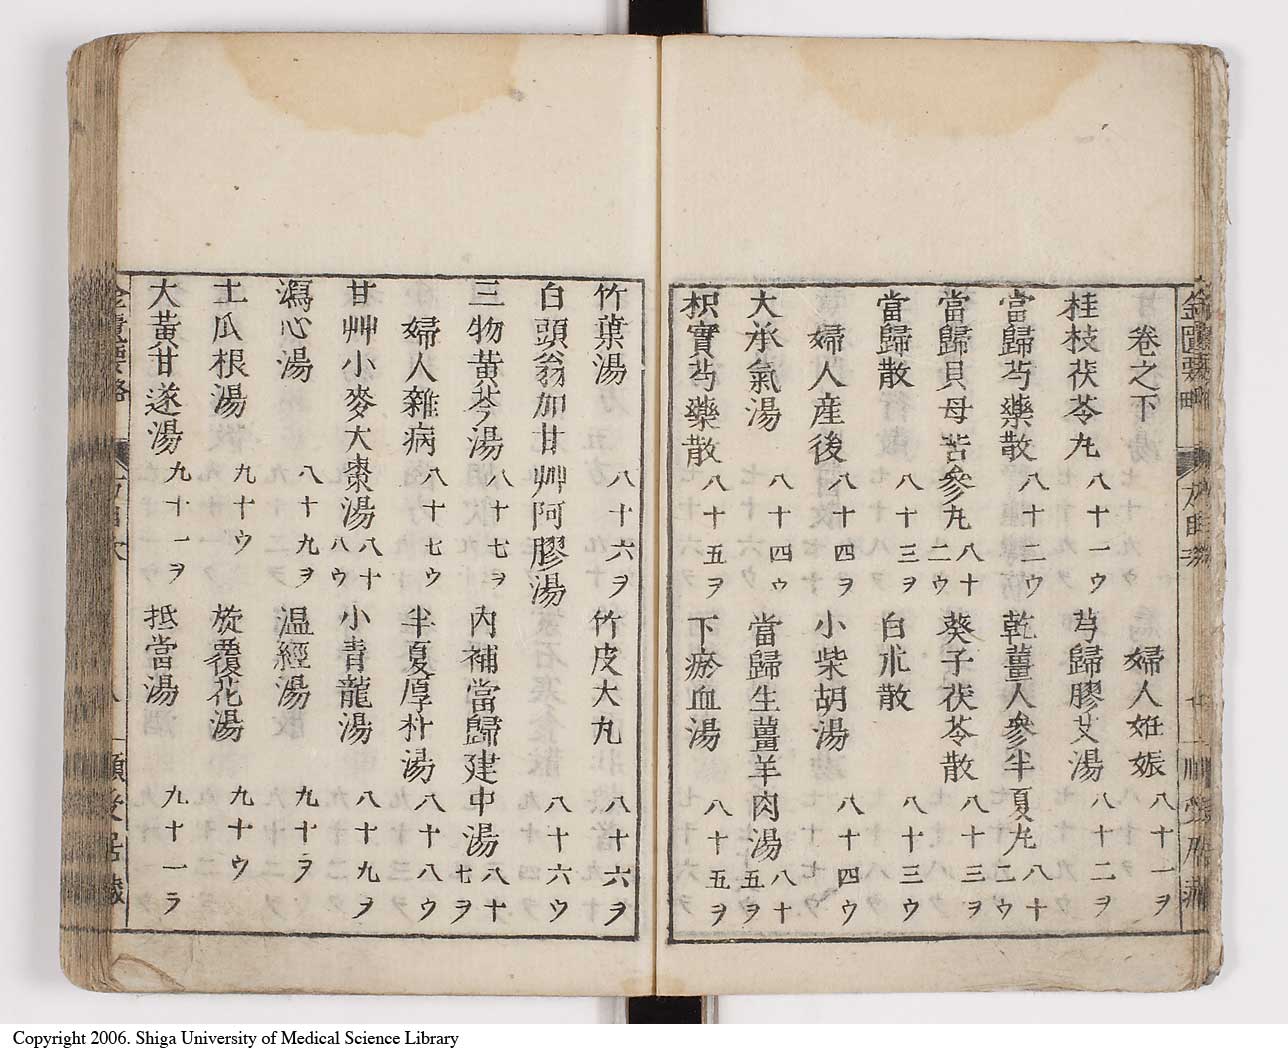 卷之下 婦人姙娠 八十一ヲ
桂枝茯苓丸 八十一ウ 芎歸膠艾湯 八十二ヲ
當歸芍藥散 八十二ウ 乾薑人參半夏丸 八十二ウ
當歸貝母苦參丸 八十二ウ 葵子茯苓散 八十三ヲ
當歸散 八十三ヲ 白朮散 八十三ウ
婦人産後 八十四ヲ 小柴胡湯 八十四ウ
大承氣湯 八十四ウ 當歸生薑羊肉湯 八十五ヲ
枳實芍藥散 八十五ヲ 下瘀血湯 八十五ヲ
竹葉湯 八十六ヲ 竹皮大丸 八十六ヲ
白頭翁加甘艸阿膠湯 八十六ウ
三物黄芩湯 八十七ヲ 内補當歸建中湯 八十七ヲ
婦人雜病 八十七ウ 半夏厚朴湯 八十八ウ
甘艸小麥大棗湯 八十八ウ 小青龍湯 八十九ヲ
瀉心湯 八十九ヲ 温經湯 九十ヲ
土瓜根湯 九十ウ 旋覆花湯 九十ウ
大黄甘遂湯 九十一ヲ 抵當湯 九十一ヲ
Copyright 2006. Shiga University of Medical Science Library